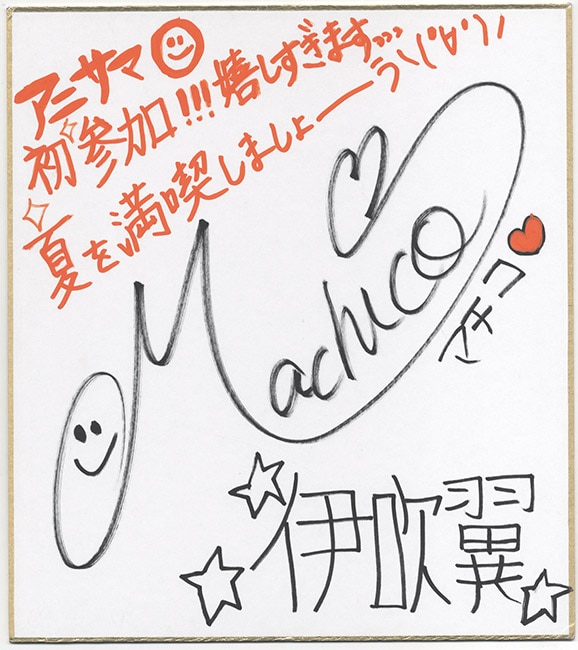 アニサマ
初参加!!!嬉しすぎます…
夏を満喫しましょーーう\('∀')/
Machico
マチコ
伊吹翼